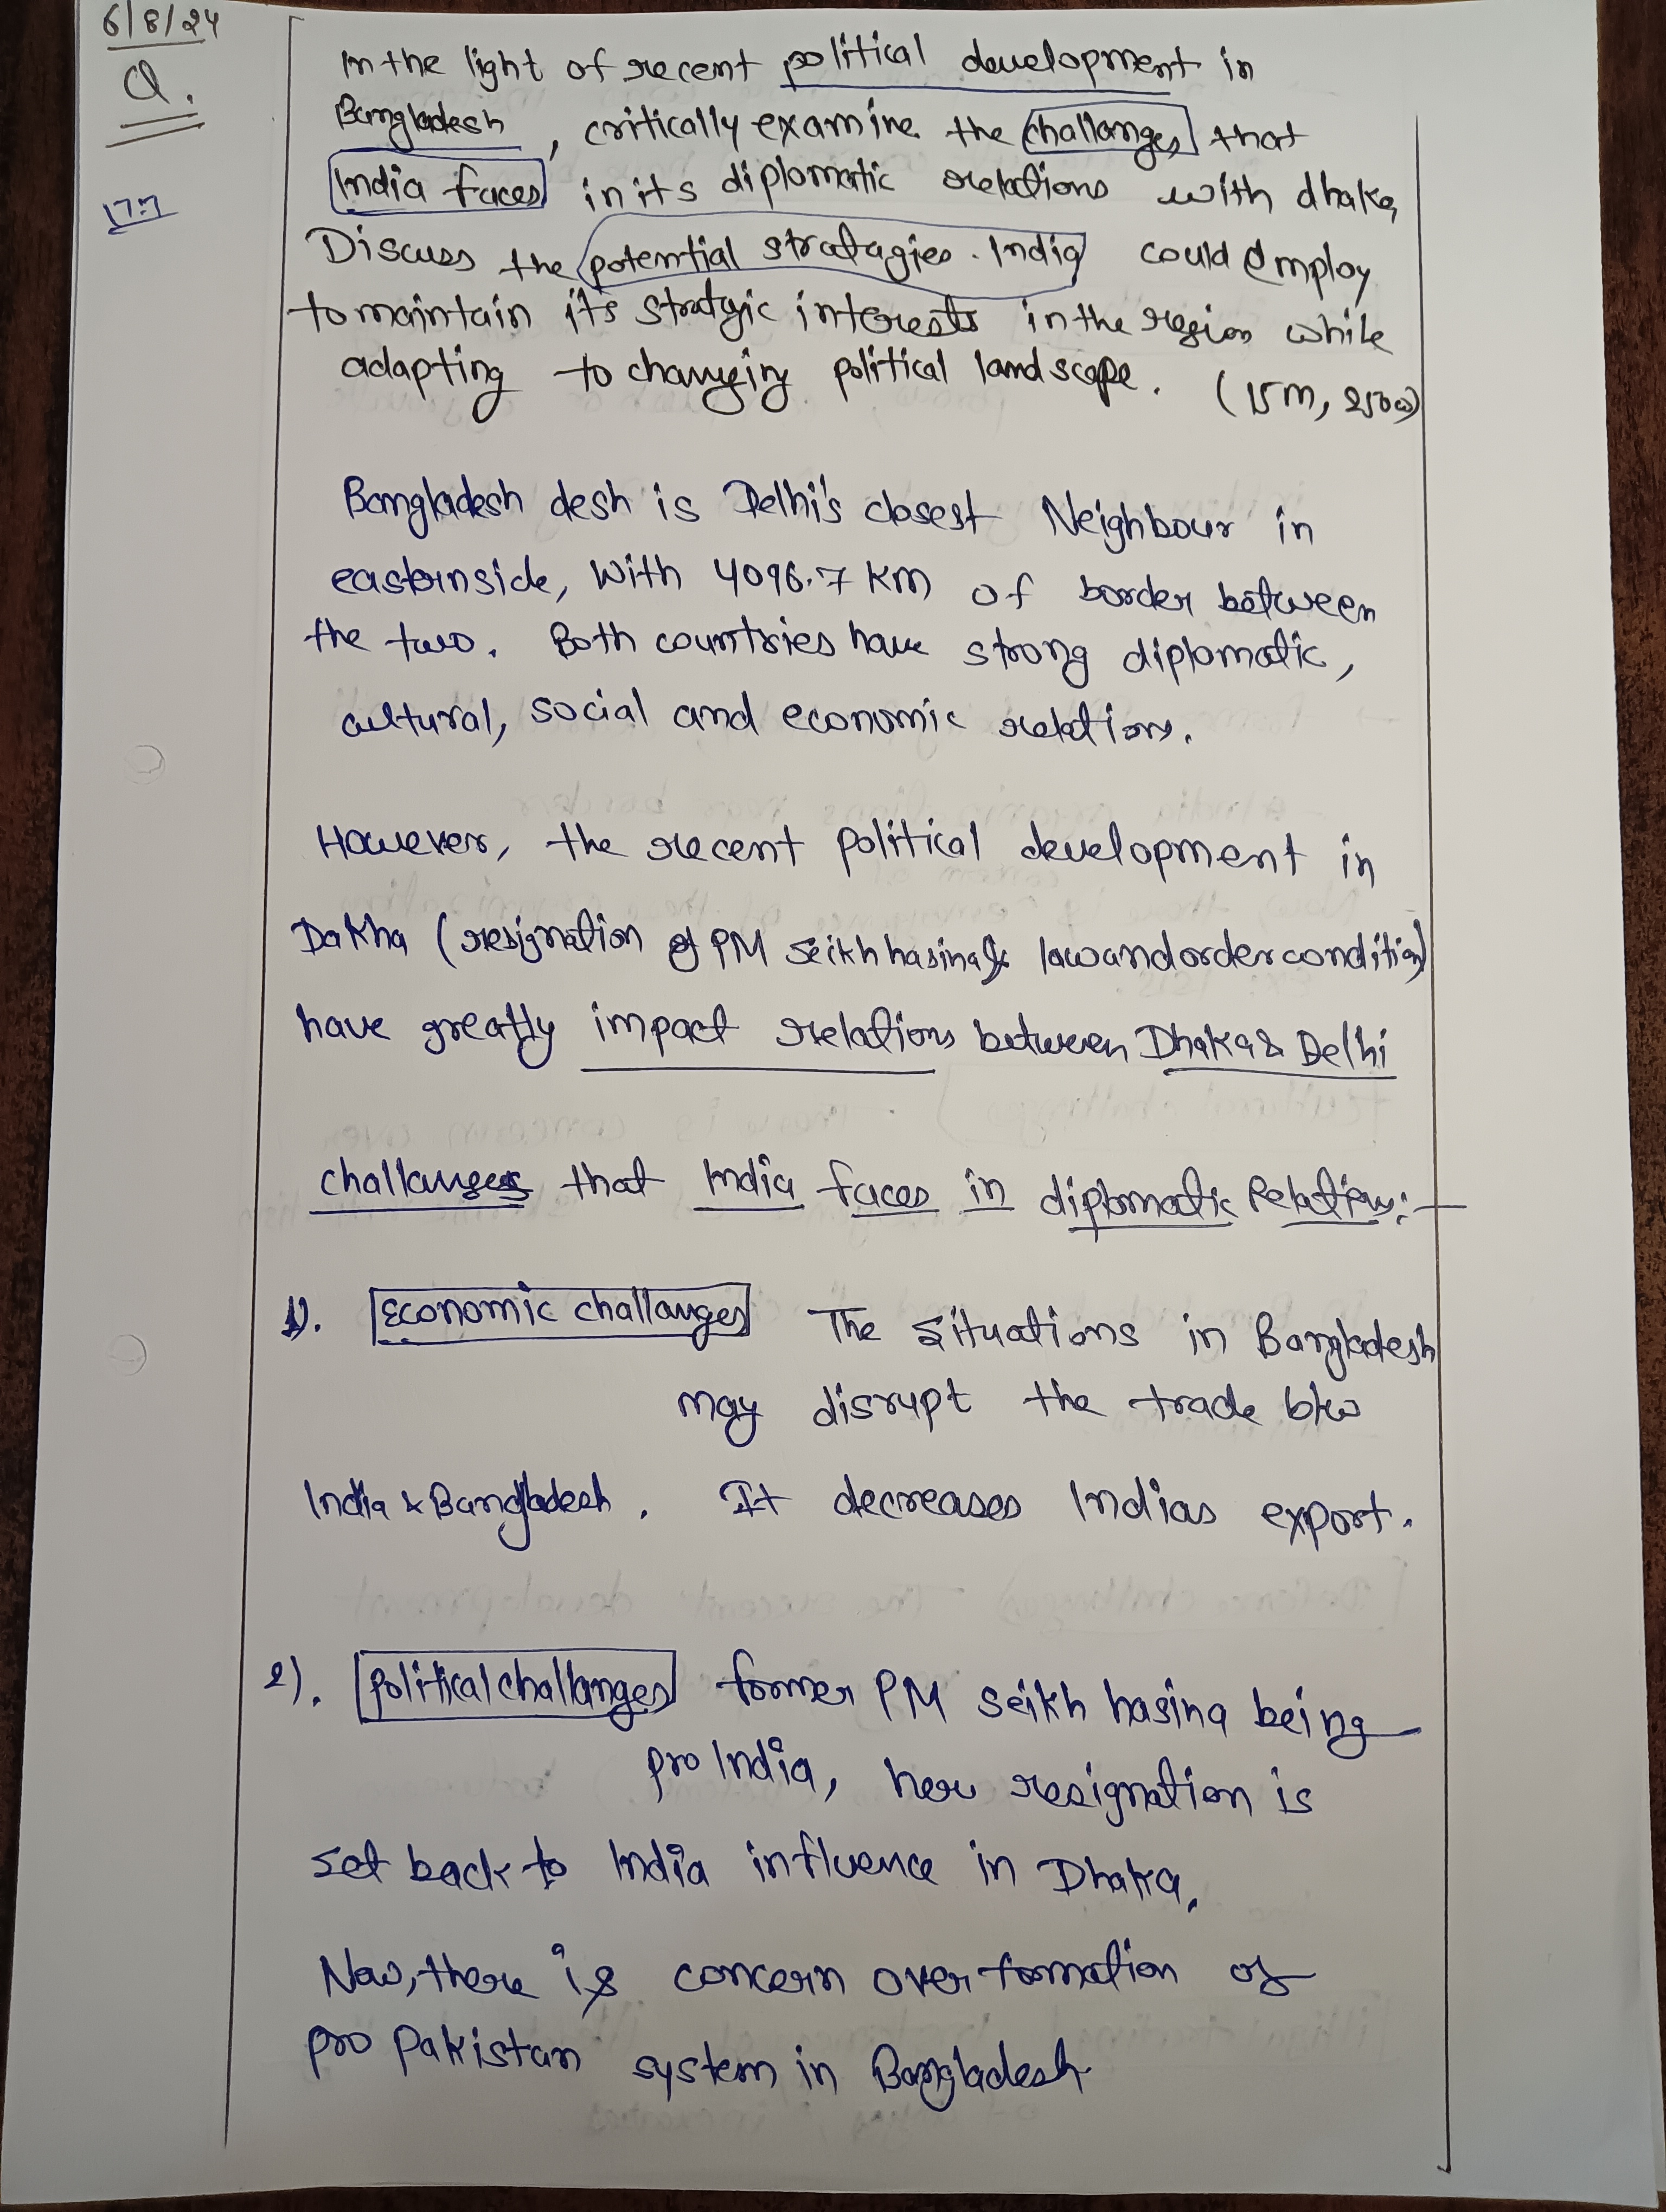 6/8/24
Q.
17:7
In the light of recent political development in
Bangladesh, critically examine the challanges that
India faces in its diplomatic relations with dhaka,
Discuss the potential stratagies. India could employ
to maintain it's stratgic interests in the region while
adapting to changing political landscape. (15m, 250w)
Bangladesh desh is Delhi's closest Neighbour in
eastern side, With 4096.7 KM of border between
the two. Both countries have strong diplomatic,
cultural, social and economic relations.
However, the recent political development in
Dakha (resignation of PM Seikh hasina & law and order condition)
have greatly impact relations between Dhaka & Delhi
challanges that India faces in diplomatic Relations:-
1). Economic challanges The situations in Bangladesh
may disrupt the trade b/w
India & Bangladesh. It decreases Indias export.
2). Political challanges former PM Seikh hasina being
pro India, her resignation is
set back to India influence in Dhaka.
Now, there is concern over formation of
pro Pakistan system in Bangladesh